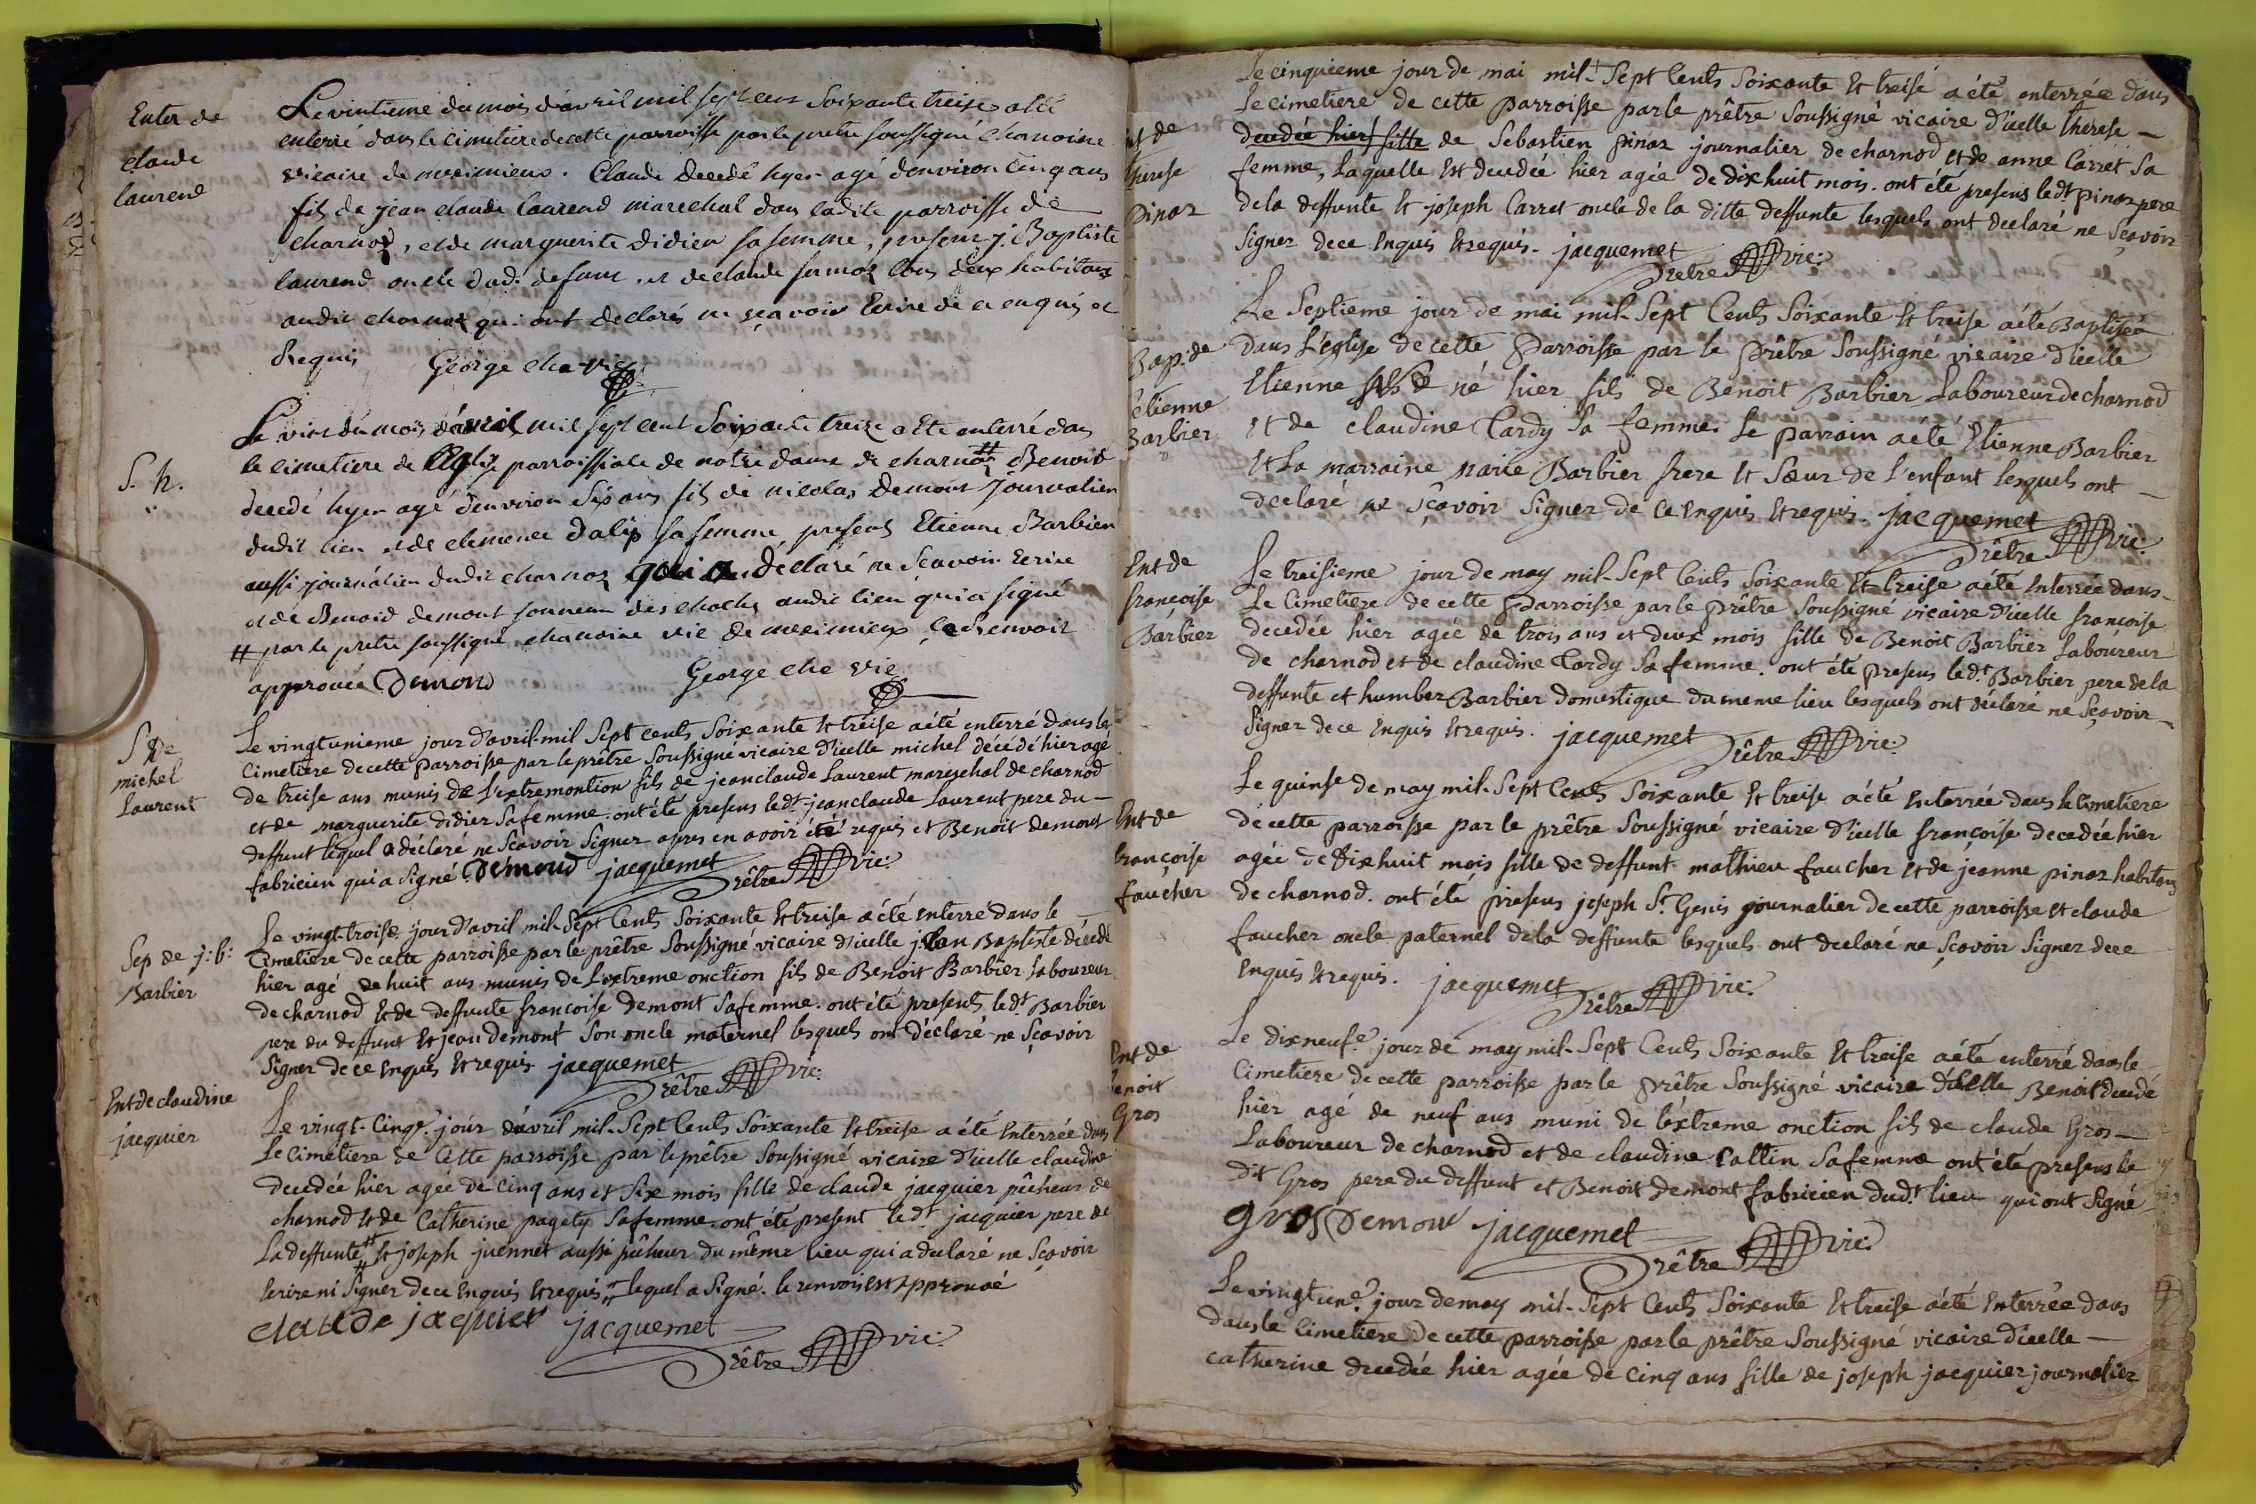 Enter de
claude
laurend
Le vintieme du mois d'avril mil sept cent soixante treise a été
enterré dans le cimetiere de cette parroisse par le pretre soussigné chanoine
vicaire de meximieux. Claude decedé hyer agé d'environ cinq ans
fils de jean claude laurend marechal dans ladite parroisse de
charnoz, et de marguerite didier sa femme, presens j. Baptiste
laurend oncle dud. defunt et de claude tous deux habitans
audit charnoz qui ont declarés ne sçavoir Ecrire de ce enquis et
Requis George cha vic
S. h.
Le vint du mois d'avril mil sept cent soixante treize a été enterré dans
le cimetiere de l'Eglise parroissiale de notre dame de charnoz # Benoit
decedé hyer agé d'environ six ans fils de nicolas demont journalier
dudit lieu et de clemence dalis sa femme presens Etienne Barbier
aussi journalier dudit charnoz qui a déclaré ne Sçavoir Ecrire
et de Benoid demont sonneur des cloches audit lieu qui a signé
# par le pretre soussigné chanoine vic de meximieux le Renvoit
approuvé Demond George cha vic
S de
michel
Laurent
Le vingtunieme jour d'avril mil Sept cents Soixante et tréise a été enterré dans le
Cimetiere de cette parroisse par le prêtre Soussigné vicaire d'icelle michel décédé hier agé
de treise ans munis de L'extremontion fils de jeanclaude Laurent mareschal de charnod
et de marguerite didier Sa femme. ont été presens led.t jeanclaude Laurent pere du
deffunt lequel a déclaré ne Scavoir Signer apres en avoir été requis et Benoit demont
fabricien qui a signé. Demoud jacquemet Prêtre vic:
Sep de j: b:
Barbier
Le vingt-troise. jour d'avril mil-Sept Cents Soixante Et treise a été enterré dans le
Cimetiere de cette parroisse par le prêtre Soussigné vicaire d'icelle jean Baptiste décedé
hier agé de huit ans munis de L'extreme onction fils de Benoit Barbier laboureur
de charnod Et de deffunte francoise Demont Sa femme. ont été presents led.t Barbier
pere du deffunt Et jean demont Son oncle maternel lesquels ont déclaré ne Sçavoir
Signer de ce Enquis Et requis jacquemet Prêtre vic:
Ent de claudine
jacquier
Le vingt-Cinqe. jour d'avril mil-Sept Cents Soixante Et treise a été Enterrée dans
Le Cimetiere de Cette parroisse par le prêtre Soussigné vicaire d'icelle claudine
decedée hier agée de cinq ans et Six mois fille de claude jacquier pêcheur de
charnod Et de Catherine pagety Sa femme. ont été present led.t jacquier pere de
La deffunte # Et joseph juennet aussi pêcheur du même lieu qui a declaré ne Sçavoir
Ecrire ni Signer de ce Enquis Et requis # lequel a Signé. le renvois est Approuvé
claude jaquier jacquemet
Prêtre vic:
Le cinquieme jour de mai mil-Sept Cents Soixante Et treise a été enterrée dans
Le cimetiere de cette parroisse par le prêtre Soussigné vicaire d'icelle therese
Ent de
therese
pinaz
decedée hier fille de Sebastien pinaz journalier de charnod et de anne Carret Sa
femme, Laquelle Est decedée hier agée de dix huit mois. ont été presens led.t pinaz pere
de la deffunte Et joseph Carret oncle de la ditte deffunte lesquels ont declaré ne Sçavoir
Signer de ce Enquis Et requis. jacquemet
Prêtre vic:
Bap. de
étienne
Barbier
Le Septieme jour de mai mil-Sept Cents Soixante Et treise a été Baptisé
dans L'église de cette Parroisse par le Prêtre Soussigné vicaire d'icelle
Etienne né hier fils de Benoit Barbier Laboureur de charnod
et de claudine Tardy Sa femme. Le parrain a été Etienne Barbier
Et La marraine marie Barbier frere Et Sœur de L'enfant lesquels ont
declaré ne Sçavoir Signer de Ce Enquis Et requis. jacquemet
Prêtre vic:
Ent de
françoise
Barbier
Le treisieme jour de may mil-Sept Cents Soixante Et treise a été Enterrée dans
Le Cimetiere de cette Parroisse par le Prêtre Soussigné vicaire d'icelle françoise
decedée hier agée de trois ans et deux mois fille de Benoit Barbier Laboureur
de charnod et de claudine Tardy Sa femme. ont été presens led.t Barbier pere de la
deffunte et humber Barbier domestique du meme lieu lesquels ont déclaré ne Sçavoir
Signer de ce Enquis Et requis. jacquemet
Prêtre vic:
Ent de
françoise
faucher
Le quinse de may mil-Sept Cents Soixante Et treise a été Enterrée dans le Cimetiere
de cette parroisse par le prêtre Soussigné vicaire d'icelle françoise decedée hier
agée de Dixhuit mois fille de deffunt mathieu faucher et de jeanne pinaz habitans
de charnod. ont été presens joseph St Genis journalier de cette parroisse et claude
faucher oncle paternel de la deffunte lesquels ont declaré ne Sçavoir Signer de ce
Enquis Et requis. jacquemet
Prêtre vic:
Ent de
Benoit
Gros
Le dixneufe. jour de may mil-Sept Cents Soixante Et treise a été enterré dans le
Cimetiere de cette parroisse par le prêtre Soussigné vicaire d'icelle Benoit decedé
hier agé de neuf ans muni de l'éxtreme onction fils de claude Gros
Laboureur de charnod et de claudine Cattin Sa femme ont été presens le
dit Gros pere du deffunt et Benoit demont fabricien dud.t lieu qui ont Signé
gros Demont jacquemet
Prêtre vic:
Le vingtune. jour de may mil-Sept Cents Soixante Et treise a été Enterrée dans
dans le Cimetiere de cette parroisse par le prêtre Soussigné vicaire d'icelle
catherine decedée hier agée de Cinq ans fille de joseph jacquier journalier